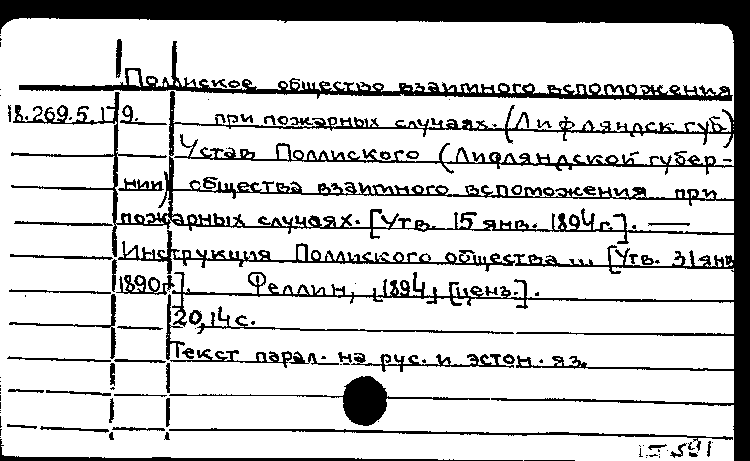 Поллиское общество взаимного вспоможения
18.269.5.179. при пожарных случаях. (Лифляндск губ)
Устав Поллиского (Лифляндской губер-
нии) общества взаимного вспоможения при
пожарных случаях. [Утв. 15 янв. 1894 г.]. —
Инструкция Поллиского общества ... [Утв. 31 янв
1890 г.]. Феллин, [1894] [ценз.].
20,14 с.
Текст парал. на рус. и эстон. яз.